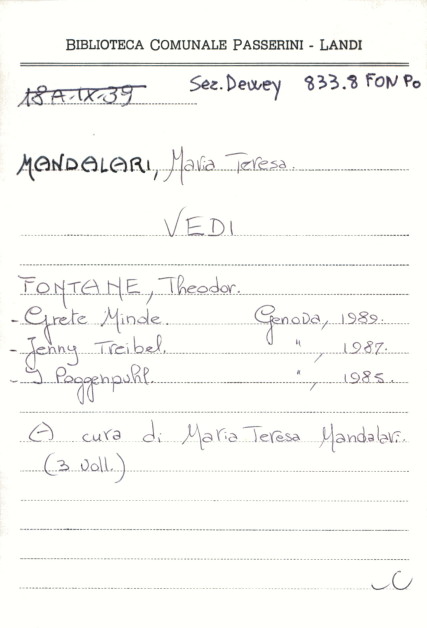 BIBLIOTECA COMUNALE PASSERINI - LANDI
18A.IX.39 Sez. Dewey 833.8 FON Po
MANDALARI, Maria Teresa.
VEDI
FONTANE, Theodor.
- Grete Minde. Genova, 1989.
- Jenny Treibel. " , 1987.
- I Poggenpuhl. " , 1985.
A cura di Maria Teresa Mandalari.
(3 voll.)